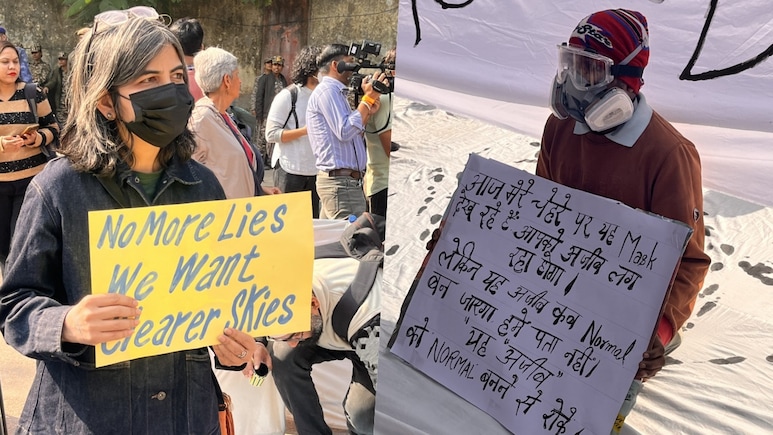 No More Lies
We Want
Clearer Skies
आज मेरे चेहरे पर यह Mask
देख रहे हैं आपको अजीब लग
रहा होगा।
लेकिन यह अजीब कब Normal
बन जाएगा हमें पता नहीं।
"यह अजीब"
को NORMAL बनने से रोके।